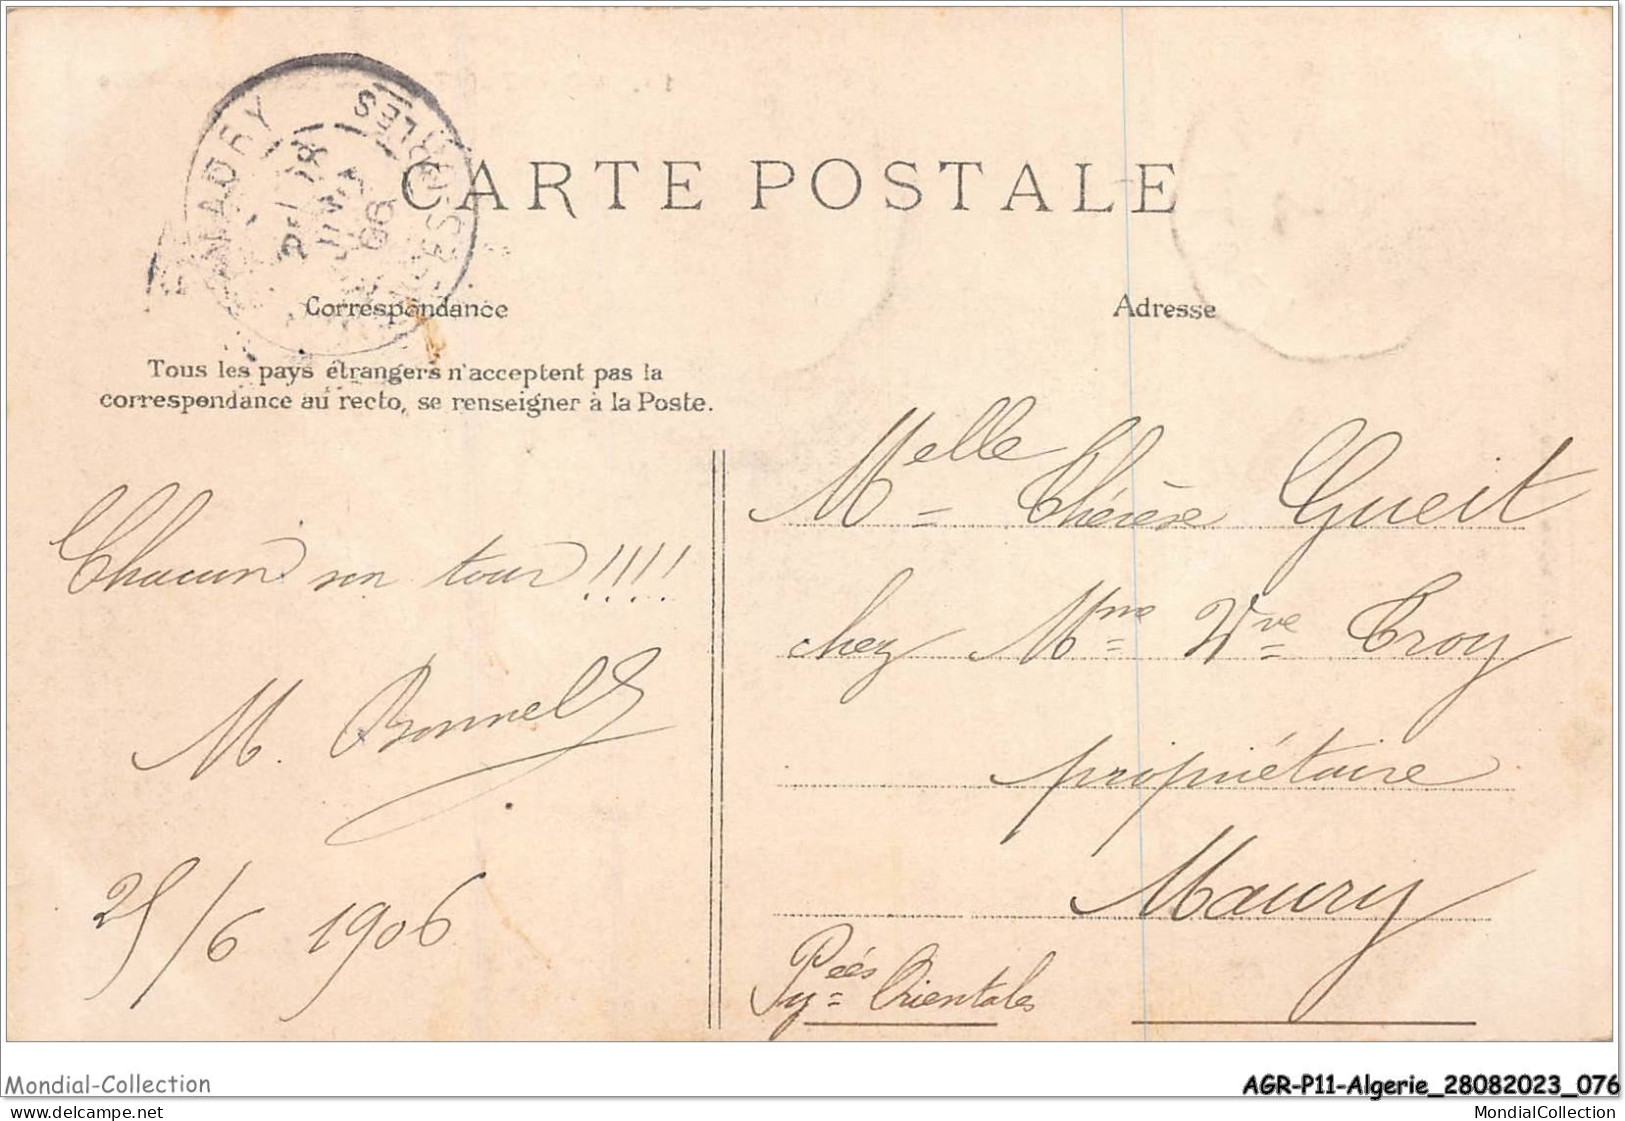 CARTE POSTALE
Correspondance
Adresse
Tous les pays étrangers n'acceptent pas la
correspondance au recto, se renseigner à la Poste.
Chacun son tour !!!!
M. Bonnel
25/6 1906
Melle Thérèse Gueit
chez Mme Vve Troy
propriétaire
Maury
Pyéés Orientales
Mondial-Collection
delcampe.net
AGR-P11-Algerie_28082023_076
MondialCollection